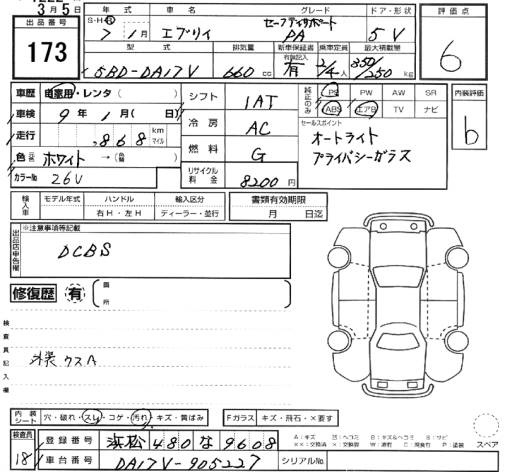 3月5日
出品番号 173
年式 車名 グレード ドア・形状 評価点
S・H・R 7/1月 エブリイ セーフティサポート PA 5V 6
型式 排気量 新車保証書 乗車定員 最大積載量
有 保証記入
5BD-DA17V 660cc 有 2/4人 350/250kg
車歴 自家用・レンタ( ) シフト 1AT 純正のみ PS PW AW SR 内装評価
車検 9年1月(日) ABS エアB TV ナビ b
冷房 AC セールスポイント
走行 ,868 km マイル オートライト
色 元色 ホワイト→(色替 ) 燃料 G プライバシーガラス
カラーNo 26V リサイクル料金 8200円
輸入車 モデル年式 ハンドル 輸入区分 書類有効期限
右H・左H ディーラー・並行 月 日迄
出品店申告欄 ※注意事項等記載
DCBS
修復歴 有 箇所
検査員記入欄
外装 ウスA
内装シート 穴・破れ・スレ・コゲ・汚れ・キズ・黄ばみ Fガラス キズ・飛石・×要す
検査員 18 登録番号 浜松480な9608
車台番号 DA17V-905227 シリアルNo.
スペア